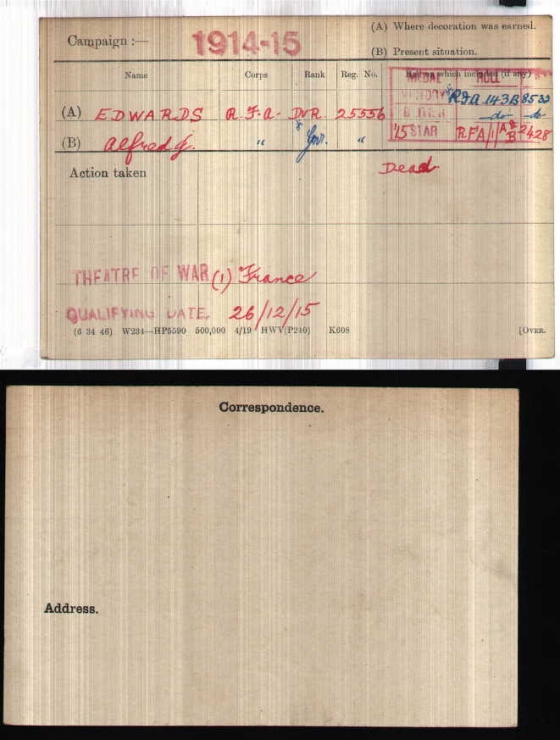 (A) Where decoration was earned.
Campaign :— 1914-15
(B) Present situation.
Name Corps Rank Reg. No. which (if any)
MEDAL ROLL
(A) EDWARDS R.F.A. DVR. 25556 VICTORY RFA 143B 8533
BRITISH do do
(B) Alfred J. " * Gnr. " '15 STAR RFA/11 A&B 2428
Action taken Dead
THEATRE OF WAR (1) France
QUALIFYING DATE. 26/12/15
(6 34 46) W234—HP5590 500,000 4/19 HWV(P240) K608 [OVER.
Correspondence.
Address.